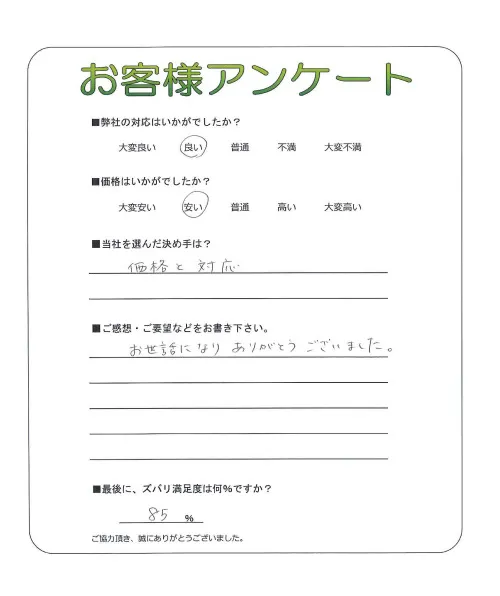 お客様アンケート
■弊社の対応はいかがでしたか？
大変良い 良い 普通 不満 大変不満
■価格はいかがでしたか？
大変安い 安い 普通 高い 大変高い
■当社を選んだ決め手は？
価格と対応
■ご感想・ご要望などをお書き下さい。
お世話になり ありがとう ございました。
■最後に、ズバリ満足度は何%ですか？
85 %
ご協力頂き、誠にありがとうございました。